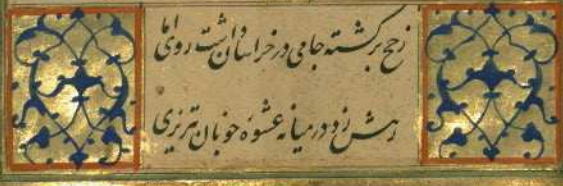 زحج برگشته جامی در خراسان داشت روی اما
رهش زد در میانه عشوه خوبان تبریزی